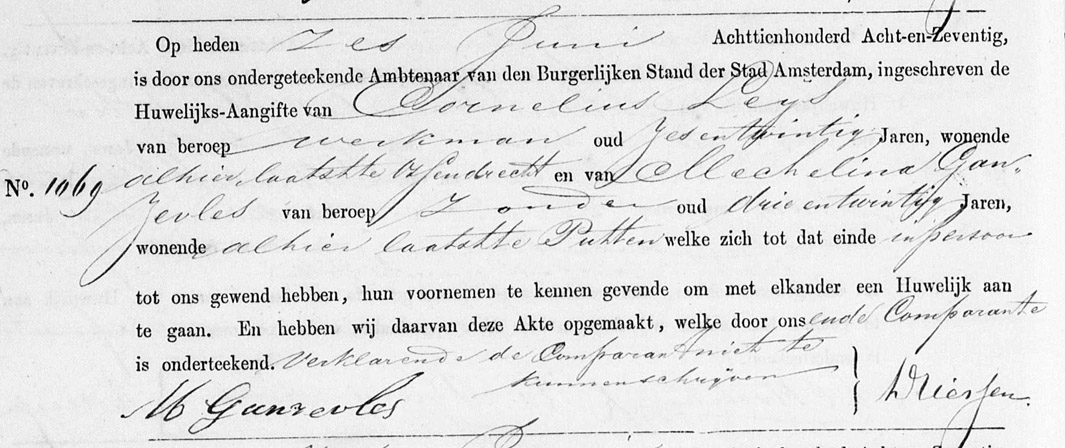 Op heden Zes Juni Achttienhonderd Acht-en-Zeventig,
is door ons ondergeteekende Ambtenaar van den Burgerlijken Stand der Stad Amsterdam, ingeschreven de
Huwelijks-Aangifte van Cornelius Leys
van beroep werkman oud Zesentwintig Jaren, wonende
No. 1069 alhier, laatstte Ossendrecht en van Mechelina Gan-
zevles van beroep Zonder oud drieentwintig Jaren,
wonende alhier laatstte Putten welke zich tot dat einde in persoon
tot ons gewend hebben, hun voornemen te kennen gevende om met elkander een Huwelijk aan
te gaan. En hebben wij daarvan deze Akte opgemaakt, welke door ons ende Comparante
is onderteekend. Verklarende de Comparant niet te
kunnen schrijven
M Ganzevles